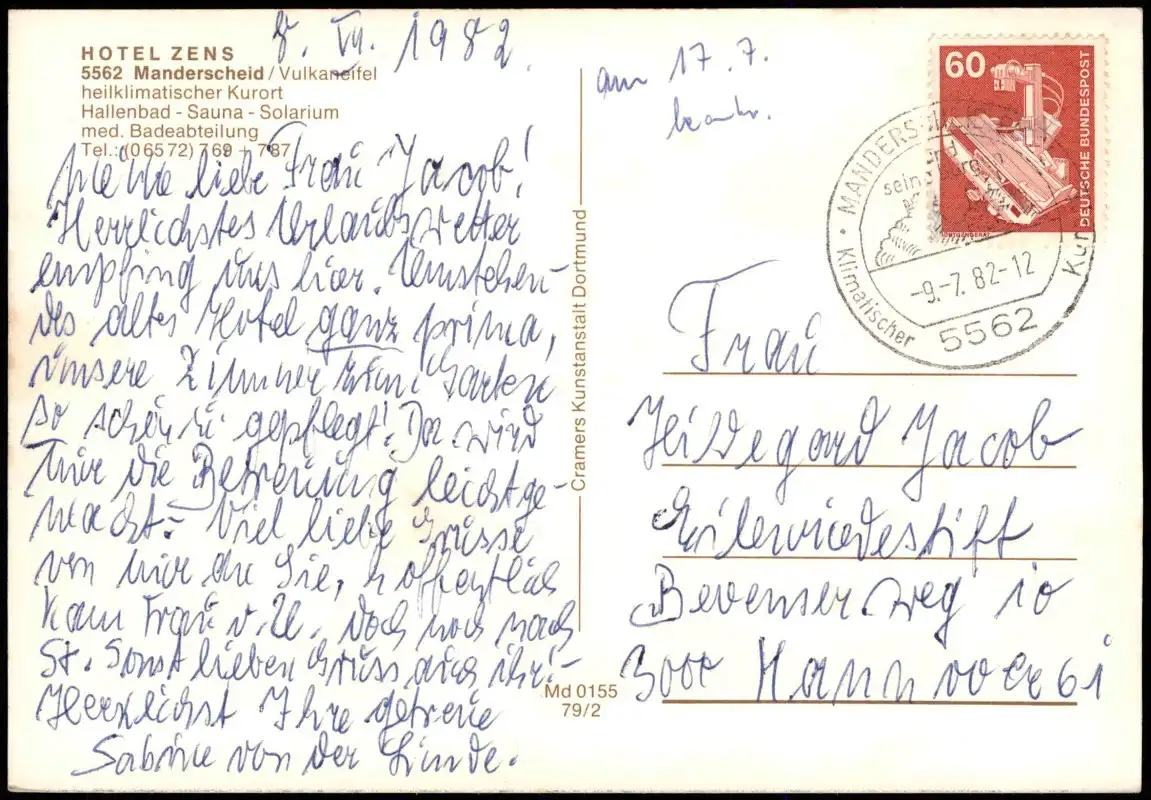 8. VII. 1982.
HOTEL ZENS
5562 Manderscheid / Vulkaneifel
heilklimatischer Kurort
Hallenbad - Sauna - Solarium
med. Badeabteilung
Tel.: (06572) 769 + 787
Meine liebe Frau Jacob!
Herrlichstes Urlaubswetter
empfing uns hier. Umstehen-
des altes Hotel ganz prima,
unsere Zimmer zum Garten
so schön u. gepflegt! Da wird
mir die Betreuung leichtge-
macht. Viel liebe Grüsse
von mir an Sie, hoffentlich
kam Frau v. U. doch noch nach
St. Sonst lieben Gruss auch ihr! -
Herzlichst Ihre getreue
Sabine von der Linde.
Cramers Kunstanstalt Dortmund
Md 0155
79/2
am 17. 7.
beantw.
60
DEUTSCHE BUNDESPOST
RÖNTGENGERÄT
MANDERSCHEID
Klimatischer Kur
-9.-7.82-12
5562
Frau
Hildegard Jacob
Eilenriedestift
Bevenser Weg 10
3000 Hannover 61